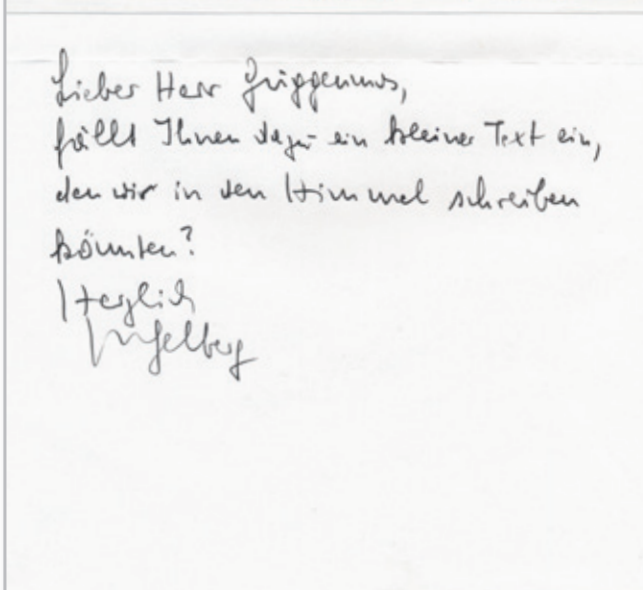 Lieber Herr Guggenmos,
fällt Ihnen dazu ein kleiner Text ein,
den wir in den Himmel schreiben
könnten?
Herzlich
Gelberg